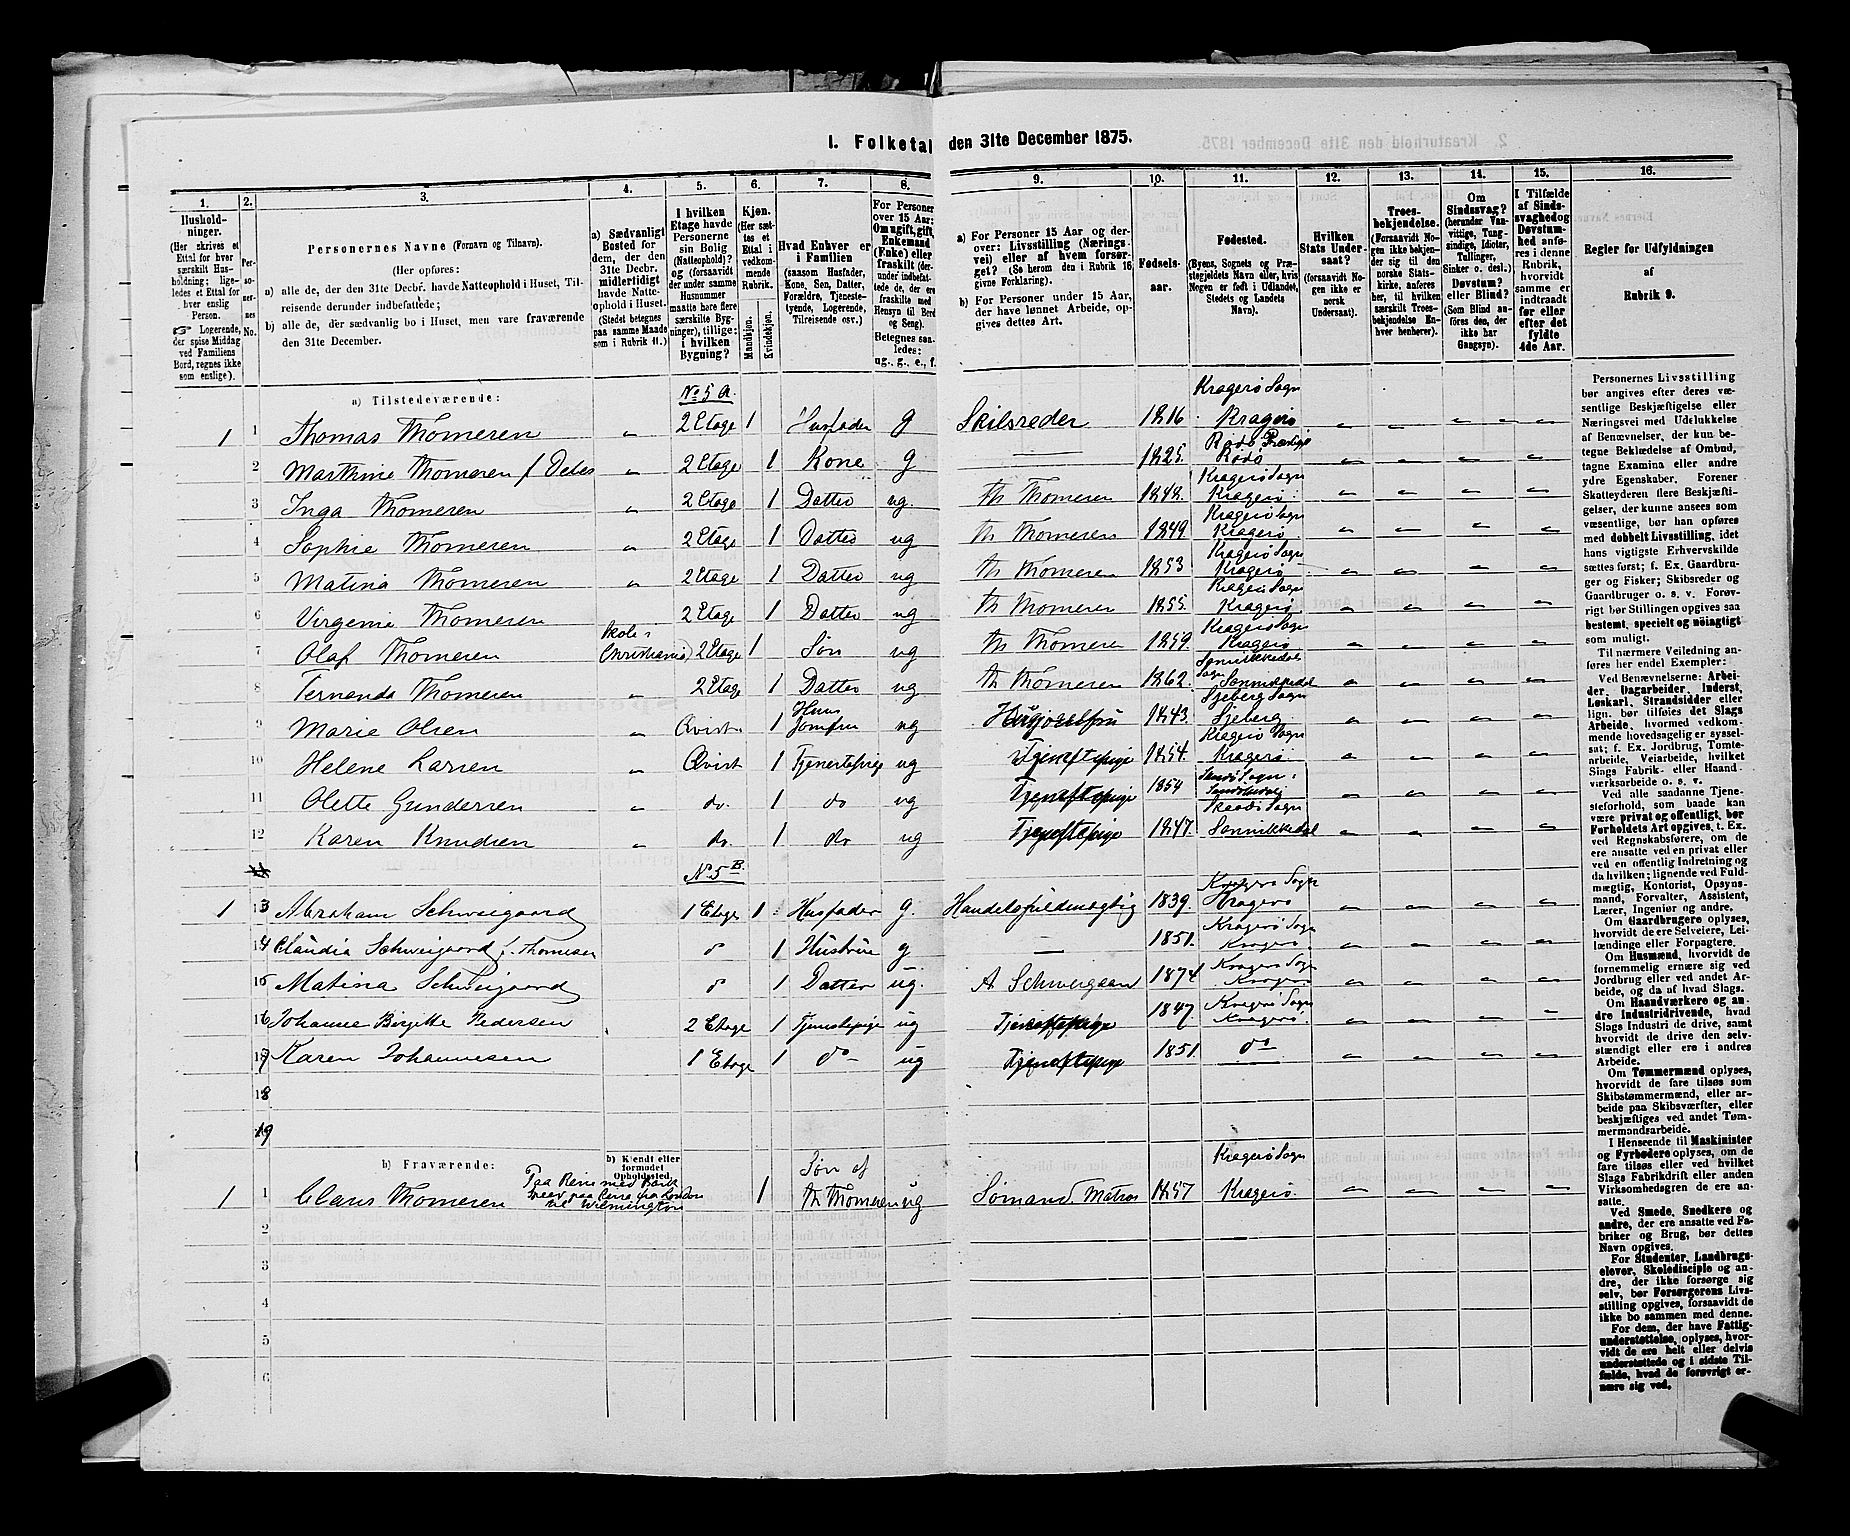 1. Folketal den 31te December 1875.
1. 2. 3. 4. 5. 6. 7. 8. 9. 10. 11. 12. 13. 14. 15. 16.
Hushold-
ninger.
(Her skrives et
Ettal for hver
særskilt Hus-
holdning; lige-
ledes et Ettal for
hver enslig
Person.
Logerende,
der spise Middag
ved Familiens
Bord, regnes ikke
som enslige).
Per-
so-
ner-
nes
No.
Personernes Navne (Fornavn og Tilnavn).
(Her opføres:
a) alle de, der den 31te Decbr. havde Natteophold i Huset, Til-
reisende derunder indbefattede;
b) alle de, der sædvanlig bo i Huset, men vare fraværende
den 31te December.
a) Sædvanligt
Bosted for
dem, der den
31te Decbr.
midlertidigt
havde Natte-
ophold i Huset.
(Stedet betegnes
paa samme Maade
som i Rubrik 11.)
I hvilken
Etage havde
Personerne
sin Bolig
(Natteophold)?
og (forsaavidt
der under samme
Husnummer
maatte høre flere
særskilte Byg-
ninger), tillige:
i hvilken
Bygning?
Kjøn.
(Her sæt-
tes et
Ettal i
vedkom-
mende
Rubrik.
Mandkjøn.
Kvindekjøn.
Hvad Enhver er
i Familien
(saasom Husfader,
Kone, Søn, Datter,
Forældre, Tjeneste-
tyende, Logerende,
Tilreisende osv.)
For Personer
over 15 Aar:
Om ugift, gift,
Enkemand
(Enke) eller
fraskilt (der-
under indbefat-
tede de, der ere
fraskilte med
Hensyn til Bord
og Seng).
Betegnes saa-
ledes:
ug., g., e., f.
a) For Personer 15 Aar og der-
over: Livsstilling (Nærings-
vei) eller af hvem forsør-
get? (Se herom den i Rubrik 16
givne Forklaring).
b) For Personer under 15 Aar,
der have lønnet Arbeide, op-
gives dettes Art.
Fødsels-
aar.
Fødested.
(Byens, Sognets og Præ-
stegjeldets Navn eller, hvis
Nogen er født i Udlandet,
Stedets og Landets
Navn).
Hvilken
Stats Under-
saat?
(forsaavidt No-
gen ikke er
norsk
Undersaat).
Troes-
bekjendelse.
(Forsaavidt No-
gen ikke bekjen-
der sig til den
norske Stats-
kirke, anføres
her, til hvilken
særskilt Troes-
bekjendelse En-
hver henhører).
Om
Sindssvag?
(herunder Van-
vittige, Tung-
sindige, Idioter,
Tullinger,
Sinker o. desl.)
Døvstum?
eller Blind?
(Som Blind an-
føres den, der
ikke har
Gangsyn).
I Tilfælde
af Sinds-
svaghed og
Døvstum-
hed anfø-
res i denne
Rubrik,
hvorvidt
samme er
indtraadt
før eller
efter det
fyldte
4de Aar.
Regler for Udfyldningen
af
Rubrik 9.
a) Tilstedeværende: No 5 A. Kragerø Sogn
1 1 Thomas Thomesen „ 2 Etage 1 Husfader g Skibsreder 1816 Kragerø
2 Marthine Thomesen f Debes „ 2 Etage 1 Kone g — 1825. Rødø Præstegj Rødø
3 Inga Thomesen „ 2 Etage 1 Datter ug. Th Thomesen 1848. Kragerø Sogn Kragerø
4 Sophie Thomesen „ 2 Etage 1 Datter ug Th Thomesen 1849 Kragerø Sogn Kragerø
5 Matina Thomesen „ 2 Etage 1 Datter ug Th Thomesen 1853 Kragerø Sogn Kragerø
6 Virgenie Thomesen 2 Etage 1 Datter ug Th Thomesen 1855. Kragerø Sogn Kragerø
7 Olaf Thomesen Skole i Christiania 2 Etage 1 Søn ug Th Thomesen 1859. Kragerø Sogn Kragerø
8 Fernanda Thomesen „ 2 Etage 1 Datter ug Th Thomesen 1862. Sannikedal Sogn Sannikedal
9 Marie Olsen „ Qvist 1 Huus Jomfru ug 1843. Sjeberg Sogn Sjeberg
10 Helene Larsen „ Qvist 1 Tjenestepige ug Tjenestepige 1854. Kragerø Sogn Kragerø
11 Olette Gundersen „ do. 1 do ug Tjenestepige 1854
12 Karen Knudsen „ do. 1 do ug Tjenestepige 1847. Skaabø Sogn Sannikkedal
No. 5 B.
1 13 Abraham Schweigaard 1 Etage 1 Husfader g. Handelsfuldmægtig 1839. Kragerø Sogn Kragerø
14 Claudia Schweigaard f. Thomesen 1 Hustrue g — 1851. Kragerø Sogn Kragerø
15 Matina Schweigaard 1 Datter ug. A Schweigaard 1874 Kragerø Sogn Kragerø
16 Johanne Birgitte Pedersen 2 Etage 1 Tjenestepige ug Tjenestepige 1847 Kragerø Sogn Kragerø
17 Karen Johannesen 1 Etage 1 do ug Tjenestepige 1851. do
18
19
b) Fraværende: b) Kjendt eller
formodet
Opholdssted. Kragerø Sogn
1 1 Claus Thomesen Paa Reise med Bark paa Reise fra London til Wilmington 1 Søn af Th Thomesen ug Sømand Matros 1857 Kragerø.
2
3
4
5
6
Personernes Livsstilling
bør angives efter deres væ-
sentlige Beskjæftigelse eller
Næringsvei med Udelukkelse
af Benævnelser, der kun be-
tegne Beklædelse af Ombud,
tagne Examina eller andre
ydre Egenskaber. Forener
Skatteyderen flere Beskjæfti-
gelser, der kunne ansees som
væsentlige, bør han opføres
med dobbelt Livsstilling, idet
hans vigtigste Erhvervskilde
sættes først; f. Ex. Gaardbru-
ger og Fisker; Skibsreder og
Gaardbruger o. s. v. Forøv-
rigt bør Stillingen opgives saa
bestemt, specielt og nøiagtigt
som muligt.
Til nærmere Veiledning an-
føres her endel Exempler:
Ved Benævnelserne: Arbei-
der, Dagarbeider, Inderst,
Løskarl, Strandsidder eller
lign. bør tilføies det Slags
Arbeide, hvormed vedkom-
mende hovedsagelig er syssel-
sat; f. Ex. Jordbrug, Tomte-
arbeide, Veiarbeide, hvilket
Slags Fabrik- eller Haand-
værksarbeide o. s. v.
Ved alle saadanne Tjene-
steforhold, som baade kan
være privat og offentligt, bør
Forholdets Art opgives, t. Ex.
ved Regnskabsførere, om de
ere ansatte ved en privat eller
ved en offentlig Indretning og
da hvilken; lignende ved Fuld-
mægtig, Kontorist, Opsyns-
mand, Forvalter, Assistent,
Lærer, Ingeniør og andre.
Om Gaardbrugere oplyses,
hvorvidt de ere Selveiere, Lei-
lændinge eller Forpagtere.
Om Husmænd, hvorvidt de
fornemmelig ernære sig ved
Jordbrug eller ved andet Ar-
beide, og da af hvad Slags.
Om Haandværkere og an-
dre Industridrivende, hvad
Slags Industri de drive, samt
hvorvidt de drive den selv-
stændigt eller ere i andres
Arbeide.
Om Tømmermænd oplyses,
hvorvidt de fare tilsøs som
Skibstømmermænd, eller ar-
beide paa Skibsværfter, eller
beskjæftiges ved andet Tøm-
mermandsarbeide.
I Henseende til Maskinister
og Fyrbødere oplyses, om de
fare tilsøs eller ved hvilket
Slags Fabrikdrift eller anden
Virksomhedsgren de ere an-
satte.
Ved Smede, Snedkere og
andre, der ere ansatte ved Fa-
briker og Brug, bør dettes
Navn opgives.
For Studenter, Landbrugs-
elever, Skoledisciple og an-
dre, der ikke forsørge sig
selv, bør Forsørgerens Livs-
stilling opgives, forsaavidt de
ikke bo sammen med denne.
For dem, der have Fattig-
understøttelse, oplyses, hvor-
vidt de ere helt eller delvis
understøttede og i sidste Til-
fælde, hvad de forøvrigt er-
nære sig ved.